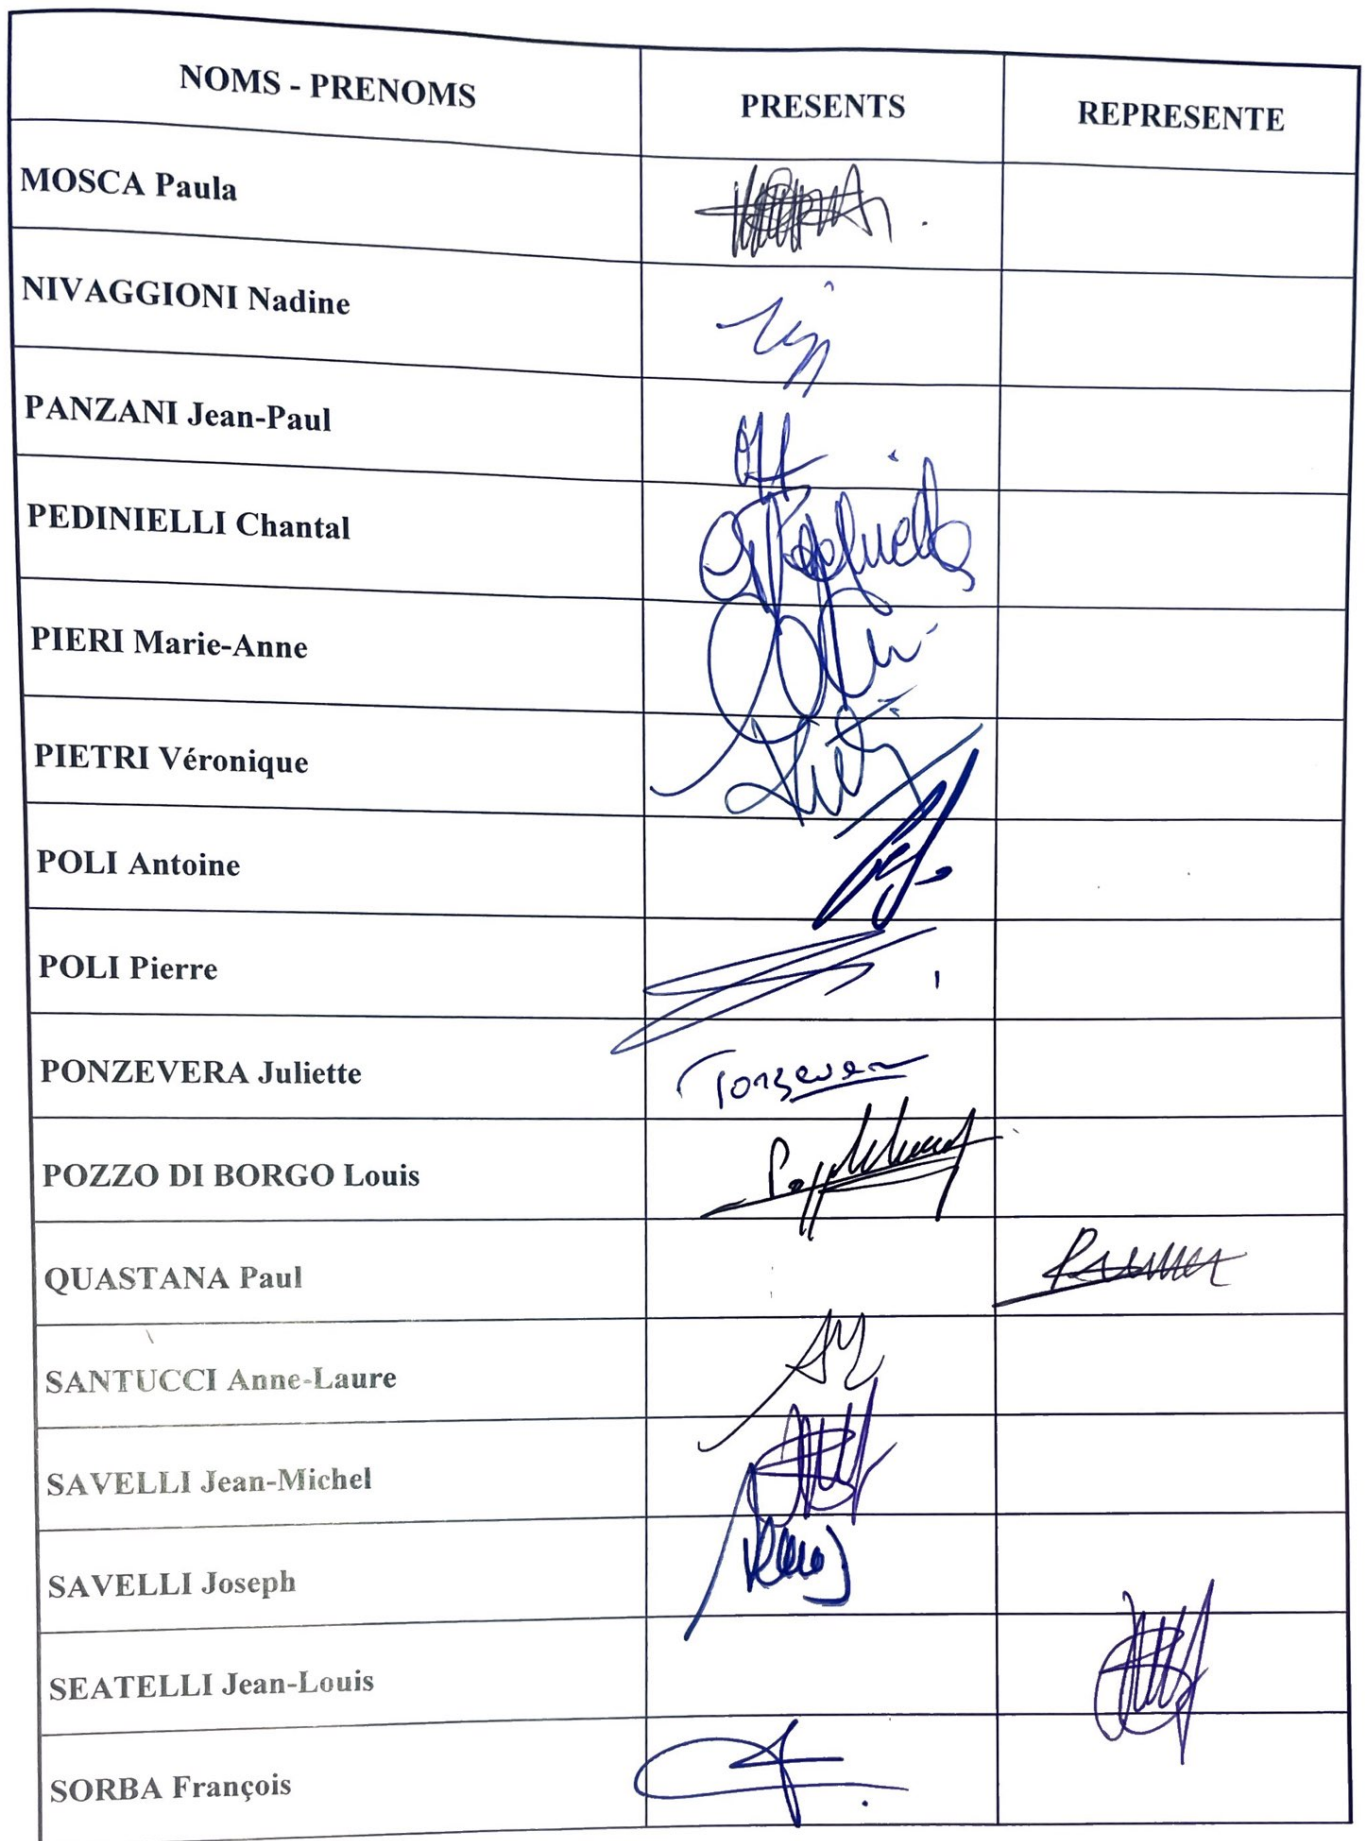 NOMS - PRENOMS PRESENTS REPRESENTE
MOSCA Paula
NIVAGGIONI Nadine
PANZANI Jean-Paul
PEDINIELLI Chantal
PIERI Marie-Anne
PIETRI Véronique
POLI Antoine
POLI Pierre
PONZEVERA Juliette
POZZO DI BORGO Louis
QUASTANA Paul
SANTUCCI Anne-Laure
SAVELLI Jean-Michel
SAVELLI Joseph
SEATELLI Jean-Louis
SORBA François